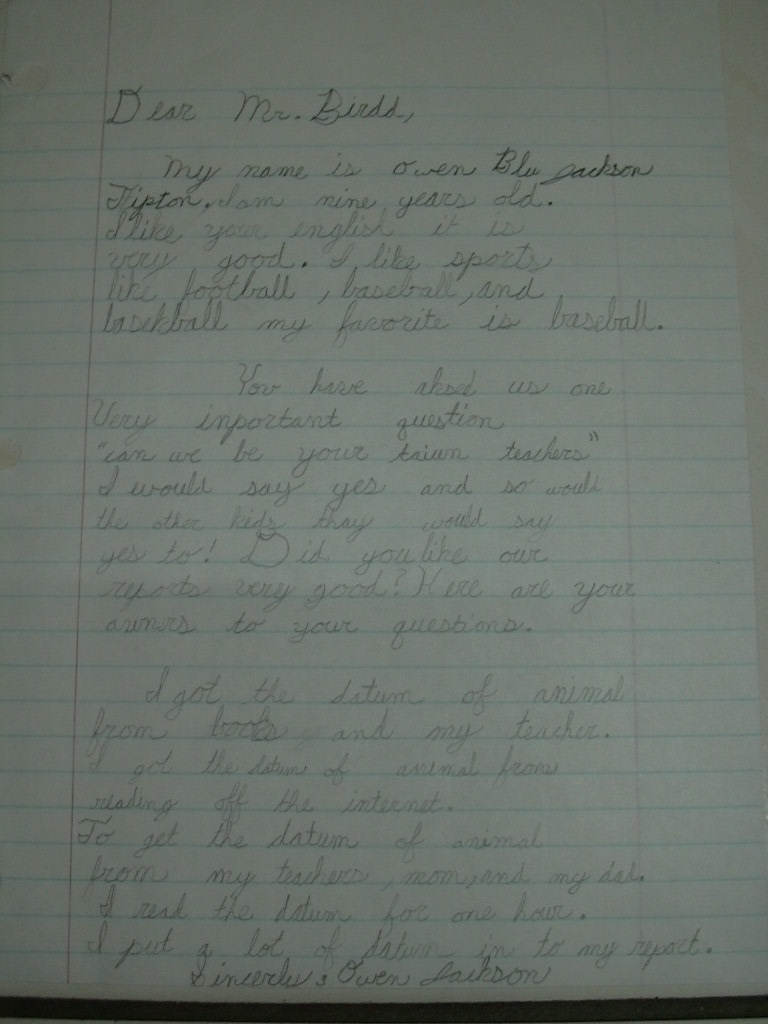 Dear Mr. Birdd,
My name is Owen Blu Jackson
Tipton. I am nine years old.
I like your english it is
very good. I like sports
like football, baseball, and
basekball my favorite is baseball.
You have aksed us one
Very inportant question
"can we be your taiwn teachers"
I would say yes and so would
the other kids thay would say
yes to! Did you like our
reports very good? Here are your
awnrs to your questions.
I got the datum of animal
from books, and my teacher.
I got the datum of animal from
reading off the internet.
To get the datum of animal
from my teachers, mom, and my dad.
I read the datum for one hour.
I put a lot of datum in to my report.
Sincerly, Owen Jackson